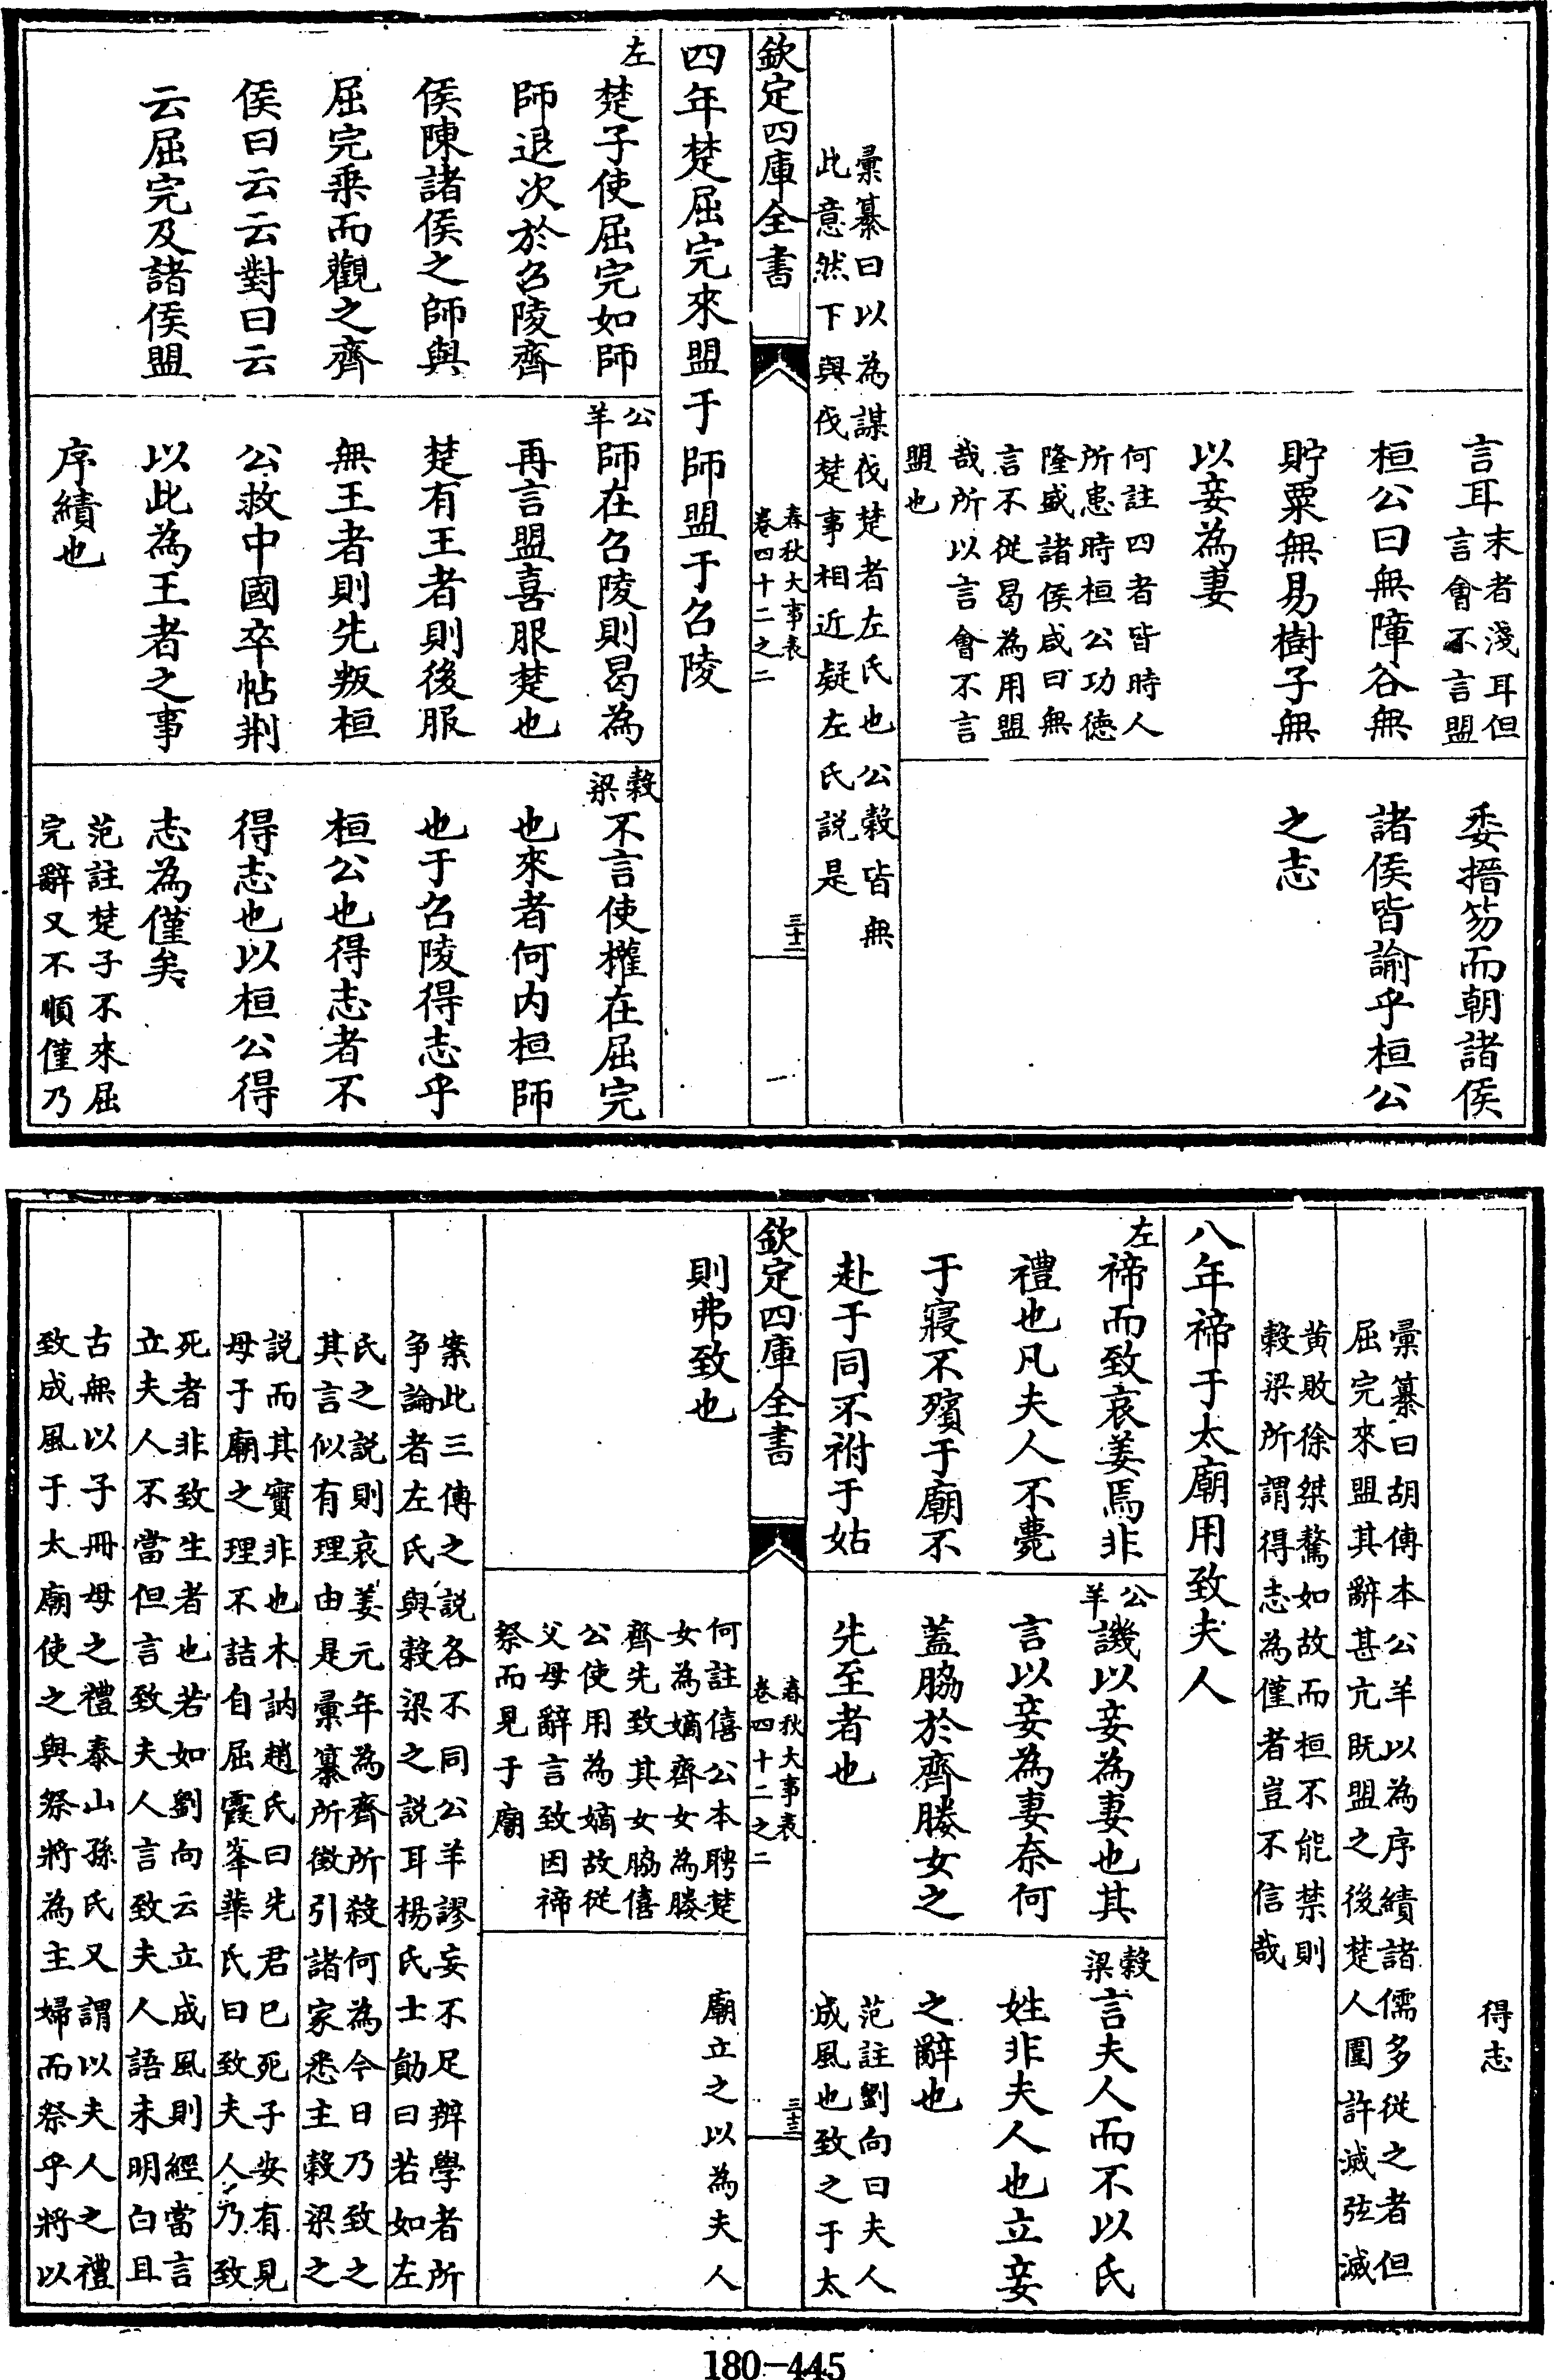 言耳
末者淺耳但
言會不言盟
桓公曰無障谷無
貯粟無易樹子無
以妾為妻
何註四者皆時人
所患時桓公功徳
隆盛諸侯咸曰無
言不從曷為用盟
哉所以言會不言
盟也
委搢笏而朝諸侯
諸侯皆諭乎桓公
之志
彙纂曰以為謀伐楚者左氏也公穀皆無
此意然下與伐楚事相近疑左氏説是
欽定四庫全書
春秋大事表
卷四十二之二
三十二
四年楚屈完來盟于師盟于召陵
左
楚子使屈完如師
師退次於召陵齊
侯陳諸侯之師與
屈完乗而觀之齊
侯曰云云對曰云
云屈完及諸侯盟
公羊
師在召陵則曷為
再言盟喜服楚也
楚有王者則後服
無王者則先叛桓
公救中國卒帖荆
以此為王者之事
序績也
穀梁
不言使權在屈完
也來者何内桓師
也于召陵得志乎
桓公也得志者不
得志也以桓公得
志為僅矣
范註楚子不來屈
完辭又不順僅乃
得志
彙纂曰胡傳本公羊以為序績諸儒多從之者但
屈完來盟其辭甚亢既盟之後楚人圍許滅弦滅
黄敗徐桀驁如故而桓不能禁則
穀梁所謂得志為僅者豈不信哉
八年禘于太廟用致夫人
左
禘而致哀姜焉非
禮也凡夫人不薨
于寢不殯于廟不
赴于同不祔于姑
則弗致也
公羊
譏以妾為妻也其
言以妾為妻奈何
蓋脇於齊媵女之
先至者也
何註僖公本聘楚
女為嫡齊女為媵
齊先致其女脇僖
公使用為嫡故從
父母辭言致因禘
祭而見于廟
穀梁
言夫人而不以氏
姓非夫人也立妾
之辭也
范註劉向曰夫人
成風也致之于太
廟立之以為夫人
欽定四庫全書
春秋大事表
卷四十二之二
三十三
案此三傳之説各不同公羊謬妄不足辨學者所
爭論者左氏與穀梁之説耳楊氏士勛曰若如左
氏之説則哀姜元年為齊所殺何為今日乃致之
其言似有理由是彙纂所徴引諸家悉主穀梁之
説而其實非也木訥趙氏曰先君已死子安有見
母于廟之理不詰自屈霞峯華氏曰致夫人乃致
死者非致生者也若如劉向云立成風則經當言
立夫人不當但言致夫人言致夫人語未明白且
古無以子冊母之禮泰山孫氏又謂以夫人之禮
致成風于太廟使之與祭將為主婦而祭乎將以
180-445